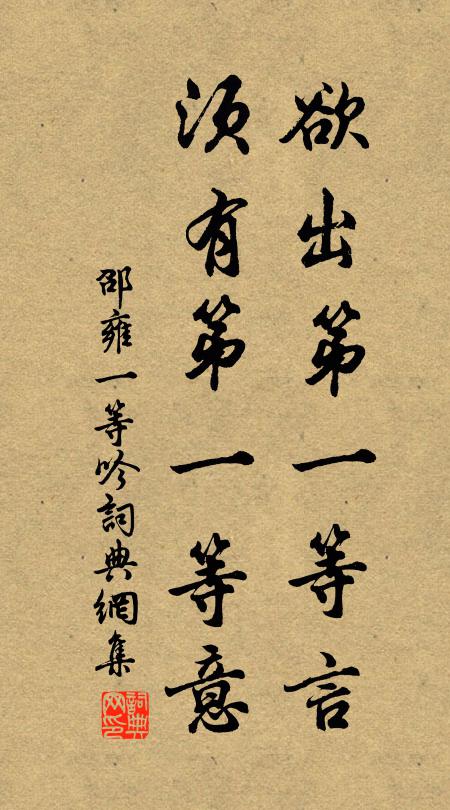 欲出第一等言
須有第一等意
邵雍一等吟詞典網集
詞典网印